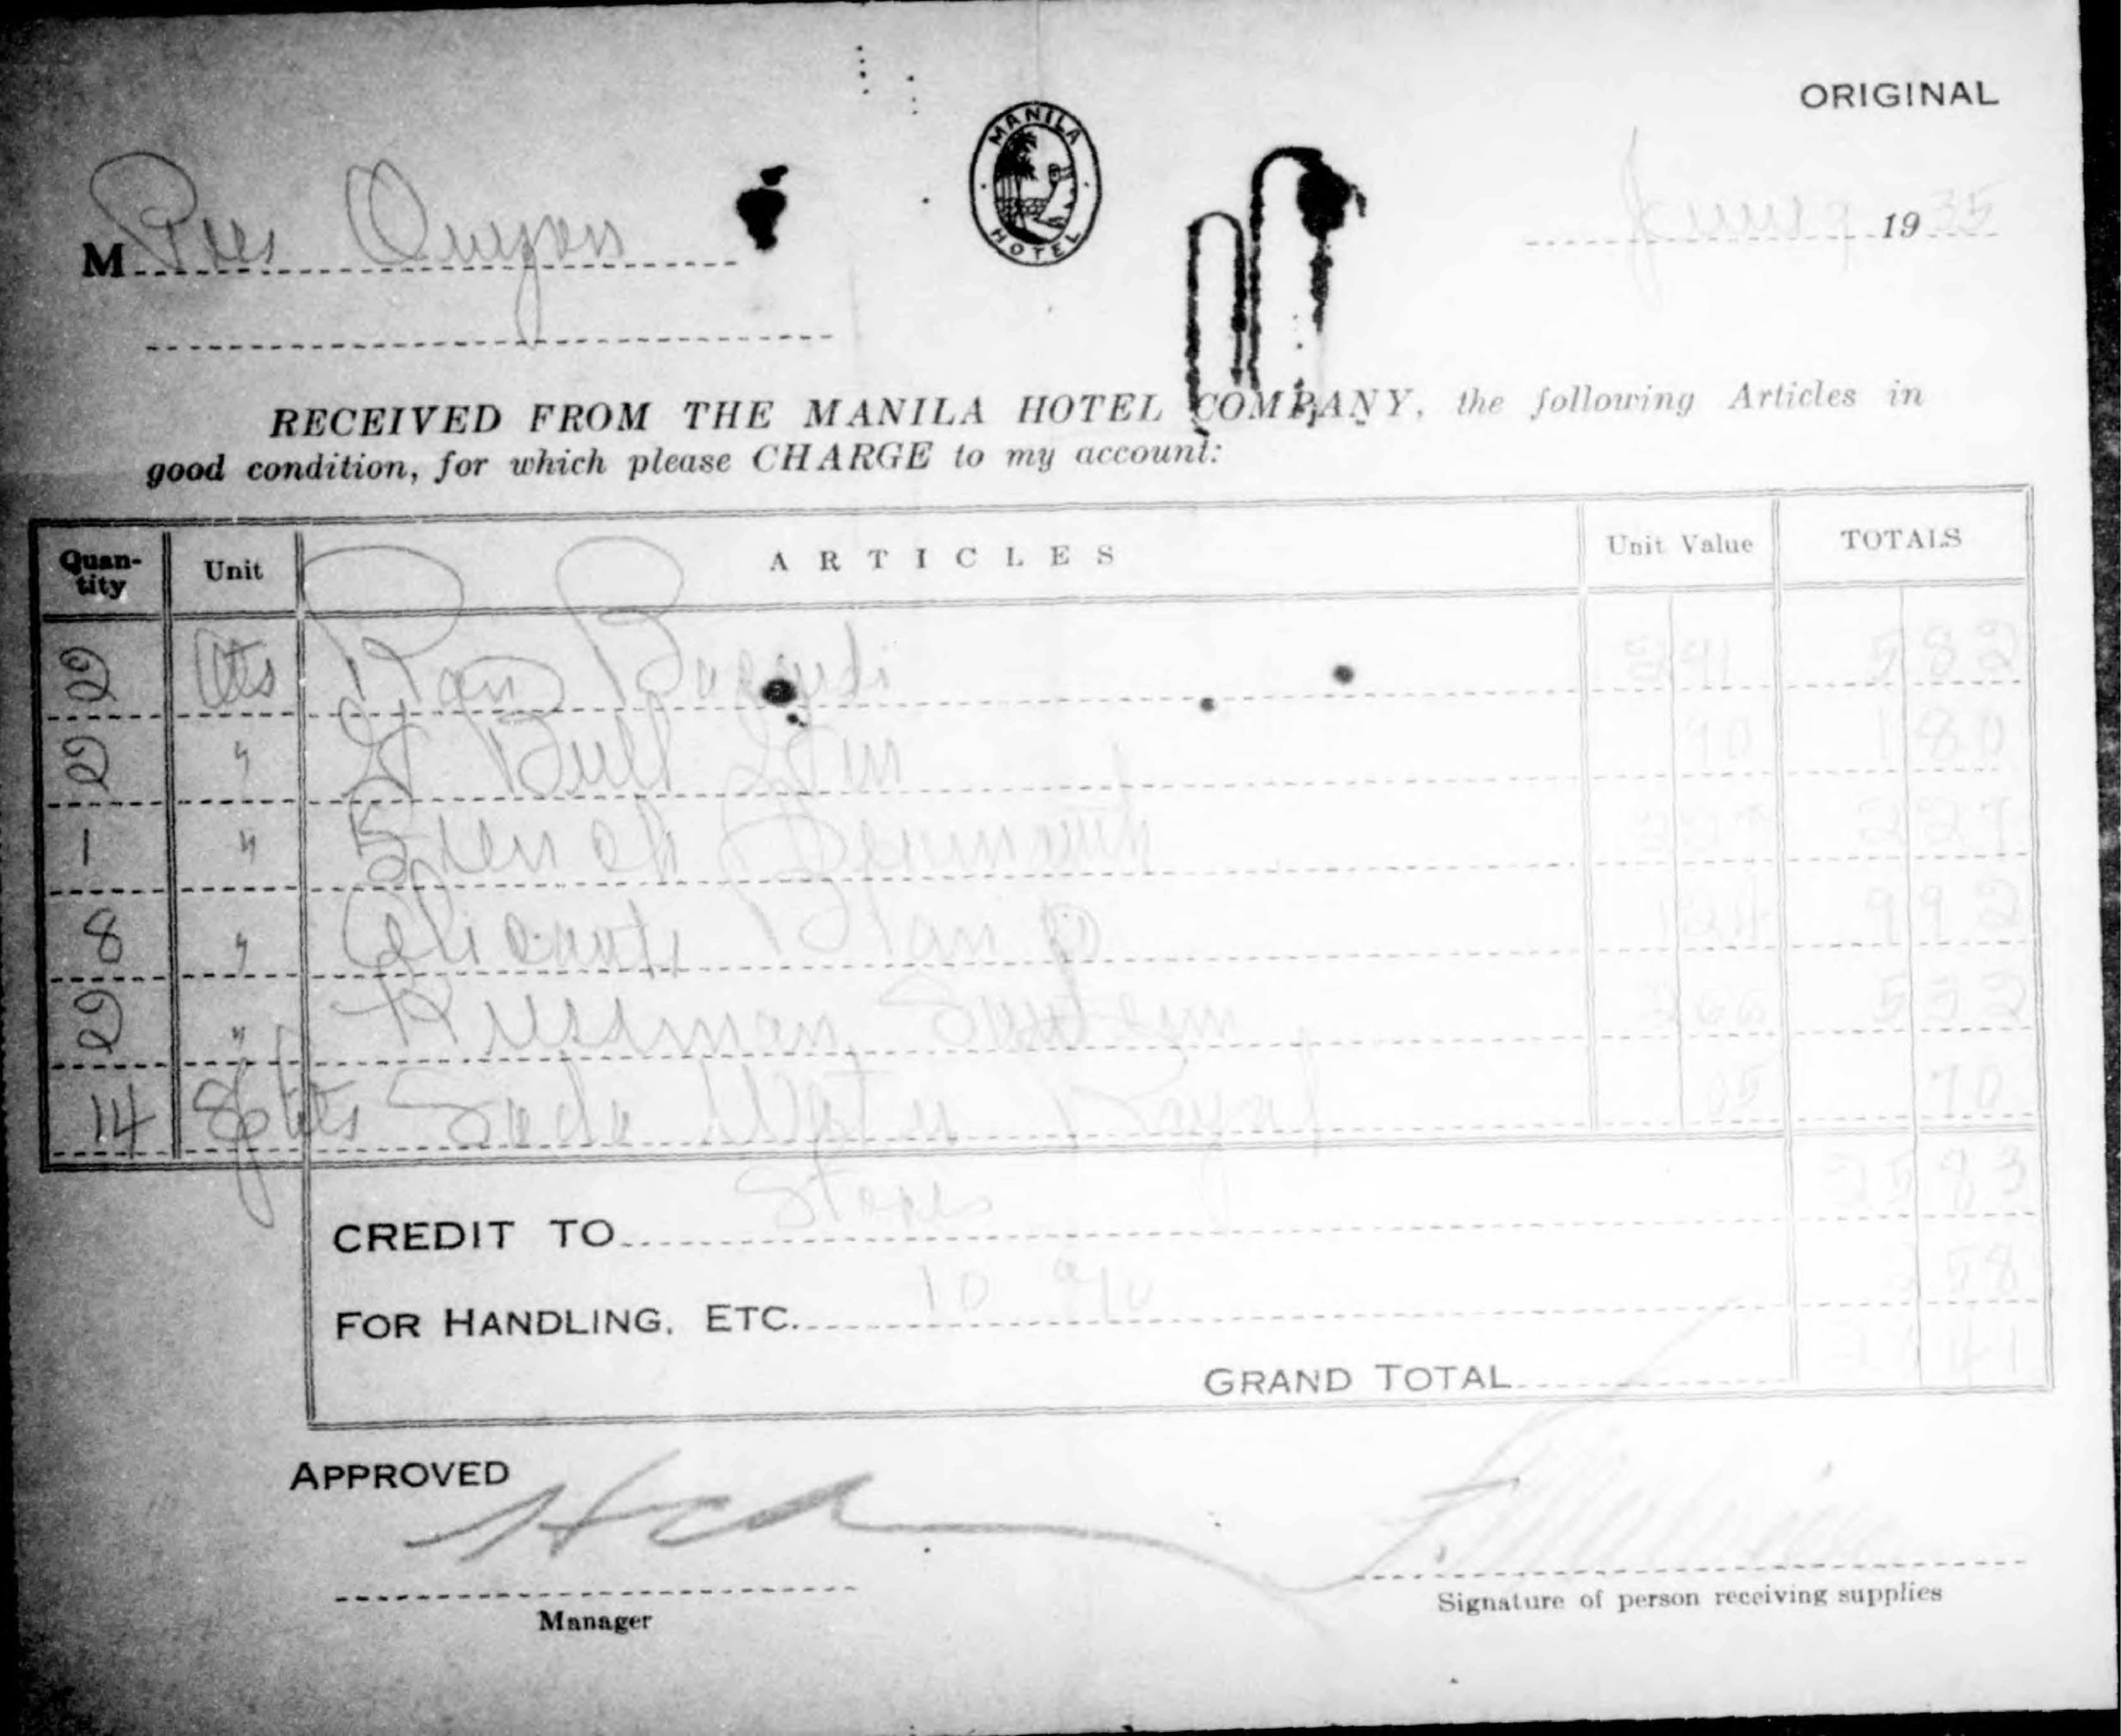 ORIGINAL
MANILA HOTEL
M Pres Quezon
June 19 35
RECEIVED FROM THE MANILA HOTEL COMPANY, the following Articles in
good condition, for which please CHARGE to my account:
Quan-tity Unit ARTICLES Unit Value TOTALS
2 Qts Bacardi 2 91 5 82
2 " Bull Gin 90 1 80
1 " French Vermouth 2 27 2 27
8 " Blanco 1 24 9 92
2 " 5 52
14 Splits Soda Water Royal 05 70
25 93
CREDIT TO Stores
FOR HANDLING, ETC. 10 % 2 58
GRAND TOTAL
APPROVED
Manager
Signature of person receiving supplies